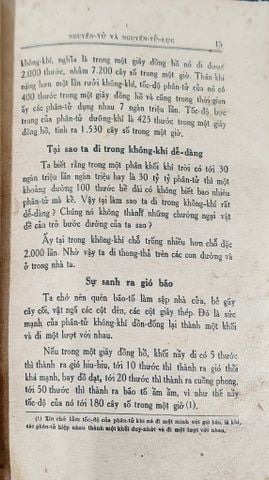 NGUYÊN-TỬ VÀ NGUYÊN-TỬ-LỰC 15
không-khí, nghĩa là trong một giây đồng hồ nó đi được
2.000 thước, nhằm 7.200 cây số trong một giờ. Thán-khí
nặng hơn một lần rưỡi không-khí, tốc-độ phân-tử của nó có
400 thước trong một giây đồng hồ và cũng trong thời-gian
ấy các phân-tử đụng nhau 7 ngàn triệu lần. Tốc-độ bực
trung của phân-tử dưỡng-khí là 425 thước trong một giây
đồng hồ, tính ra 1.530 cây số trong một giờ.
Tại sao ta đi trong không-khí dễ-dàng
Ta biết rằng trong một phân khối khí trời có tới 30
ngàn triệu lần ngàn triệu hay là 30 tỷ tỷ phân-tử thì một
khoảng đường 100 thước bề dài có không biết bao nhiêu
phân-tử mà kể. Vậy tại làm sao ta đi trong không-khí rất
dễ-dàng ? Chúng nó không thành những chướng ngại vật
để cản trở bước đường của ta sao ?
Ấy tại trong không-khí chỗ trống nhiều hơn chỗ đặc
2.000 lần. Nhờ vậy ta đi thong-thả trên các con đường và
ở trong nhà ta.
Sự sanh ra gió bão
Ta chớ nên quên bão-tố làm sập nhà cửa, bẻ gãy
cây cối, vật ngã các cột đèn, các cột giây thép. Đó là sức
mạnh của phân-tử không-khí dồn-đống lại thành một khối
và đi một lượt với nhau.
Nếu trong một giây đồng hồ, khối nầy đi có 5 thước
thì thành ra gió hiu-hiu, tới 10 thước thì thành ra gió thổi
khá mạnh, bay đồ đạt, tới 20 thước thì thành ra cuồng phong,
tới 50 thước thì thành ra bão tố ầm ầm, vì như thế nầy
tốc-độ của nó tới 180 cây số trong một giờ (1).
(1) Xin chớ lầm tốc-độ của phân-tử khí nó đi một mình với gió bão, là khi
các phân-tử hiệp nhau thành một khối duy-nhứt và đi một lượt với nhau.